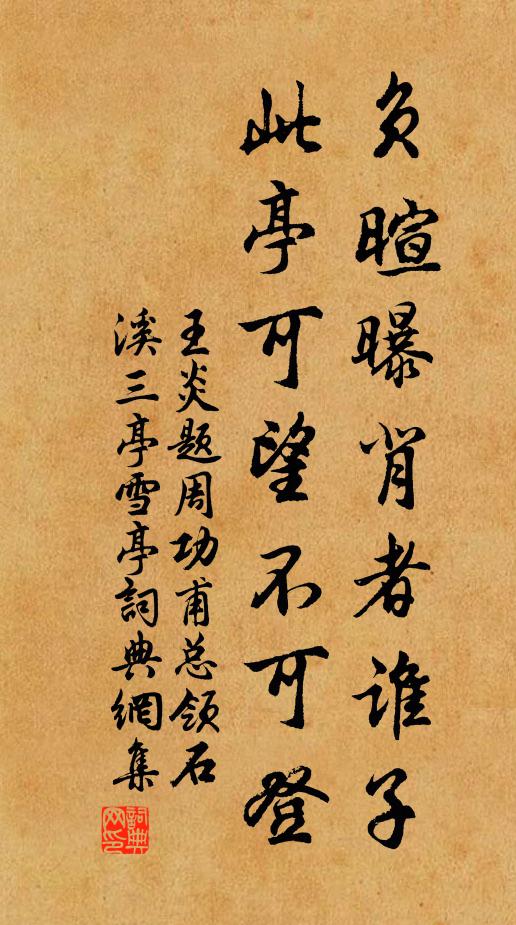 负暄曝背者谁子
此亭可望不可登
王炎题周功甫总领石
溪三亭雪亭詞典網集
詞典网印